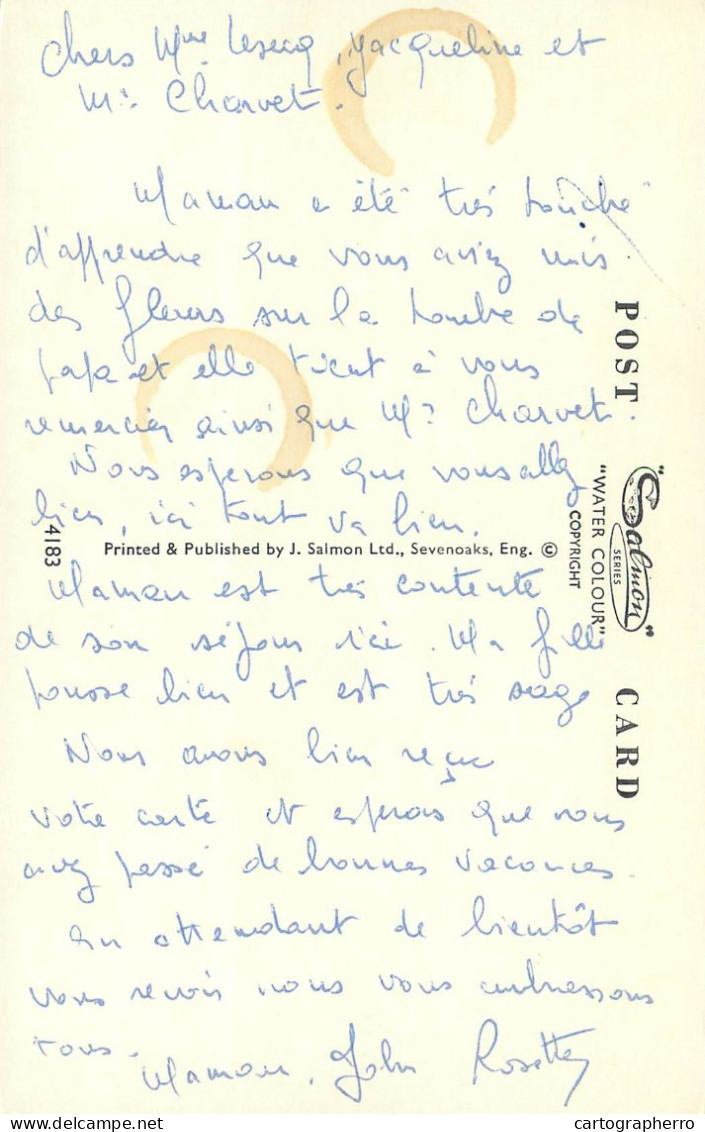 Chers Mme Lesecq, Jacqueline et
Mr Charvet.
Maman a été très touché
d'apprendre que vous aviez mis
des fleurs sur la tombe de
papa et elle tient à vous
remercier ainsi que Mr Charvet.
Nous esperons que vous allez
bien, ici tout va bien.
Maman est très contente
de son séjour ici. Ma fille
pousse bien et est très sage
Nous avons bien reçu
votre carte et esperons que vous
avez passé de bonnes vacances.
En attendant de bientôt
vous revoir nous vous embrassons
tous.
Maman, John Rosette
POST CARD
"Salmon SERIES"
"WATER COLOUR"
COPYRIGHT
4183
Printed & Published by J. Salmon Ltd., Sevenoaks, Eng. ©
cartographerro